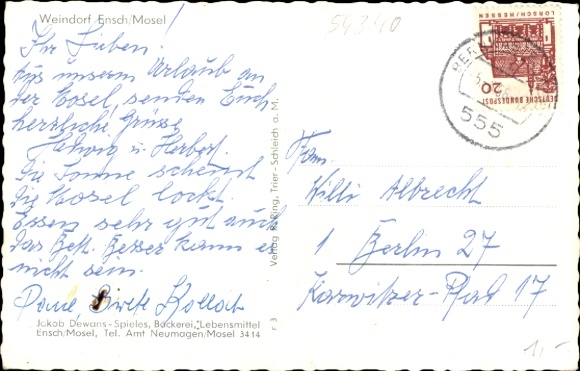 Weindorf Ensch/Mosel
54340
Ihr Lieben!
Aus unserm Urlaub an
der Mosel, senden Euch
herzliche Grüsse
Hedwig u. Herbert.
Die Sonne scheint
die Mosel lockt.
Essen sehr gut auch
das Bett. Besser kann es
nicht sein.
Kollat
Jakob Dewans-Spieles, Bäckerei, Lebensmittel
Ensch/Mosel, Tel. Amt Neumagen/Mosel 3414
r 3
Verlag R. Ring, Trier-Schleich a. M.
LORSCH/HESSEN
20
DEUTSCHE BUNDESPOST
555
Fam.
Willi Albrecht
1 Berlin 27
Karwitzer-Pfad 17
1,-